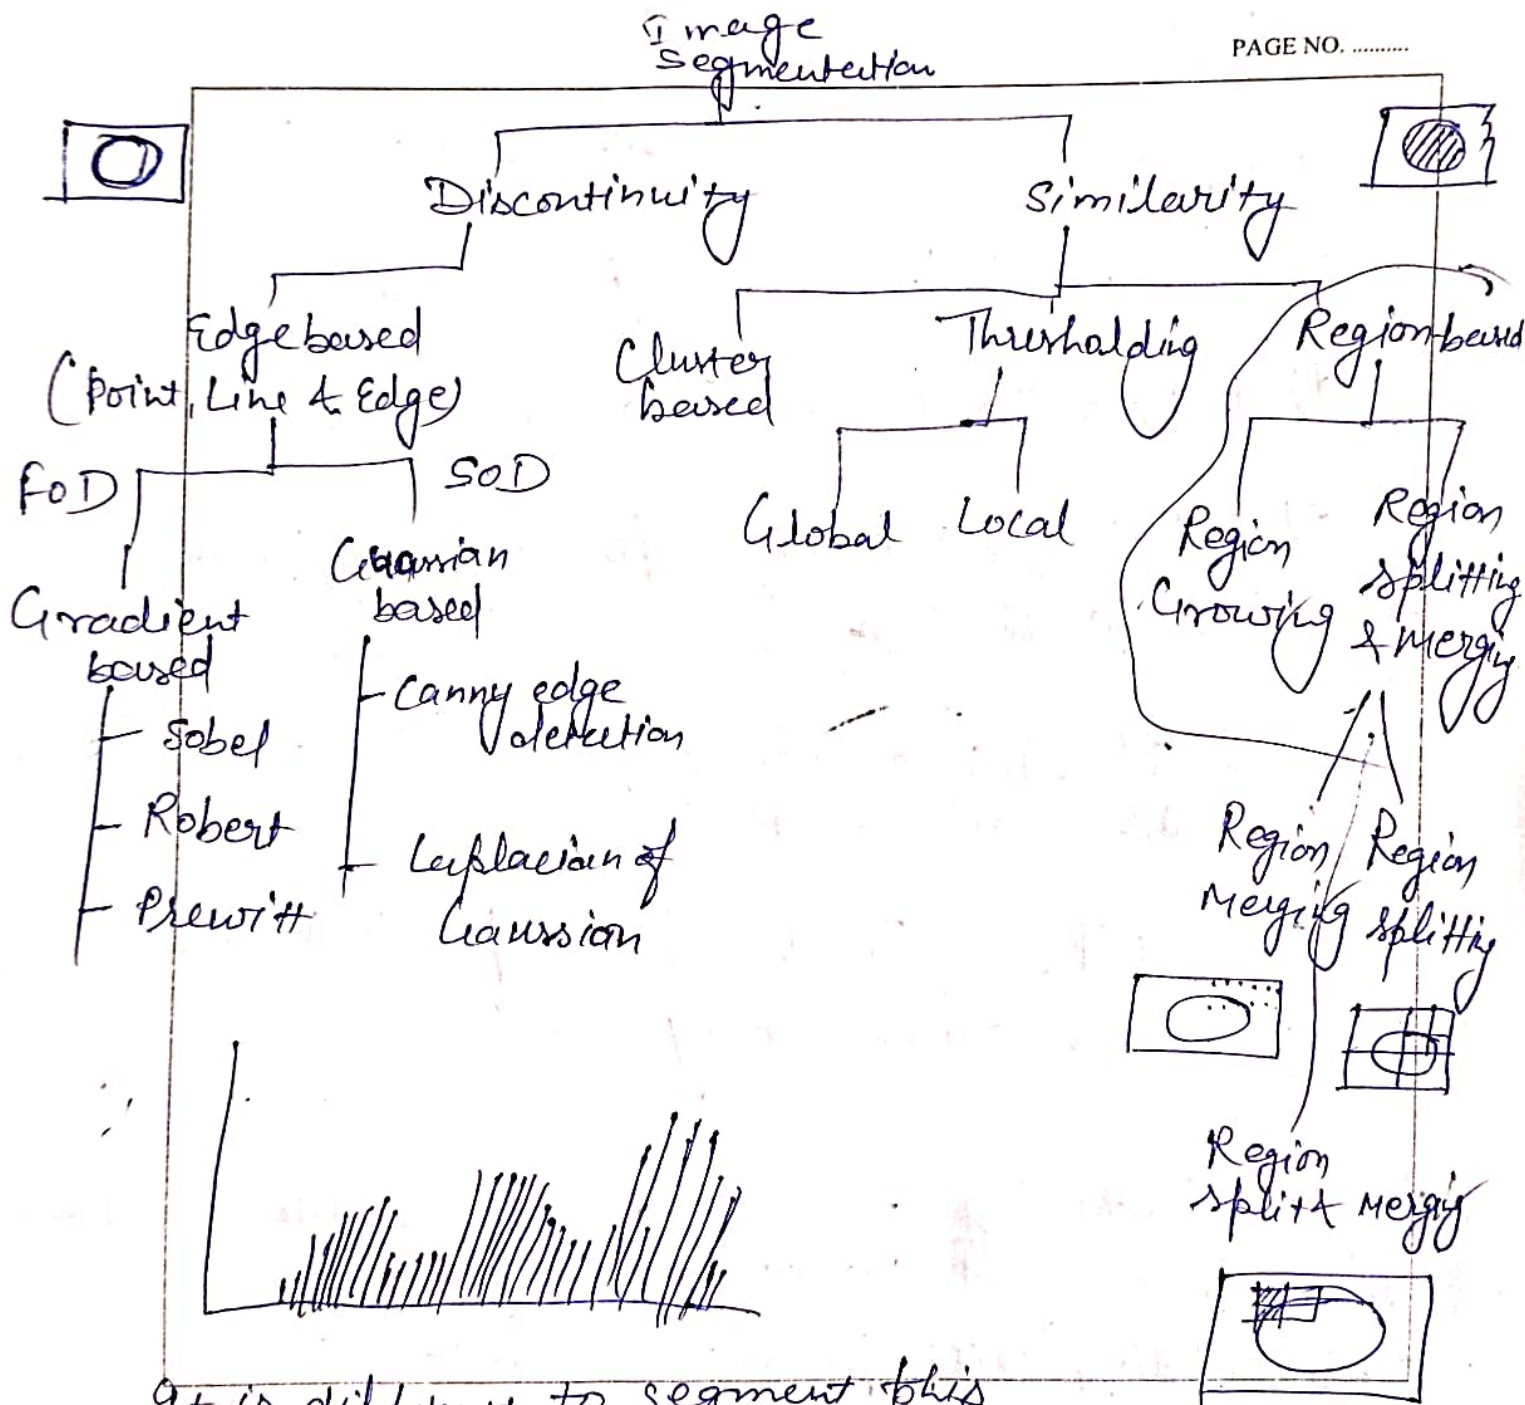 PAGE NO. ..........
Image
Segmentation
Discontinuity
Similarity
Edge based
(Point, Line & Edge)
Cluster
based
Thresholding
Region-based
FOD
SOD
Global
Local
Region
Growing
Region
splitting
& merging
Gradient
based
Gaussian
based
Sobel
Robert
Prewitt
Canny edge
detection
Laplacian of
Gaussian
Region
Merging
Region
splitting
Region
split & Merging
It is to segment this